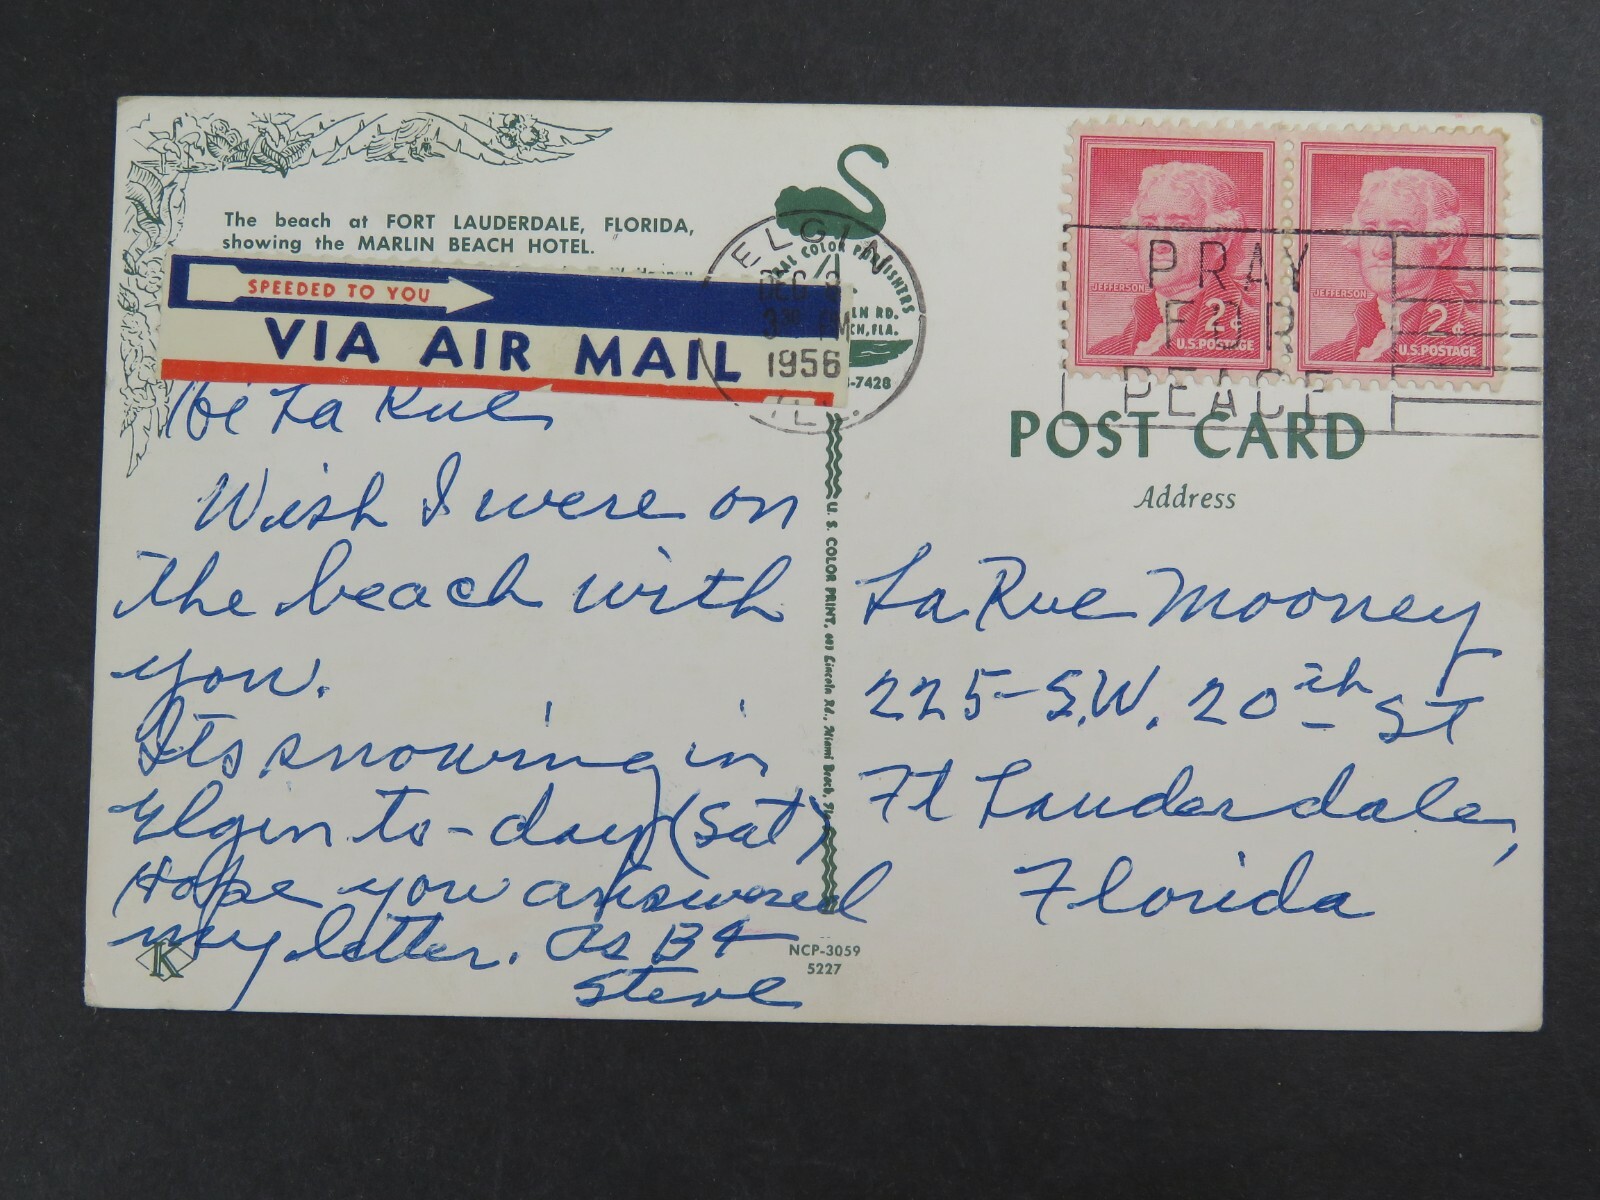 The beach at FORT LAUDERDALE, FLORIDA,
showing the MARLIN BEACH HOTEL.
SPEEDED TO YOU
VIA AIR MAIL
Hi La Rue
Wish I were on
the beach with
you.
Its snowing in
Elgin to-day (Sat)
Hope you answered
my letter. As B4
Steve
K
NCP-3059
5227
ELGIN
DEC
PM
1956
ILL.
COLOR PUBLISHERS
LN RD.
CH, FLA.
-7428
U. S. COLOR PRINT, 605 Lincoln Rd., Miami Beach,
JEFFERSON
2¢
U.S. POSTAGE
JEFFERSON
2¢
U.S. POSTAGE
PRAY
FOR
PEACE
POST CARD
Address
LaRue Mooney
225-S.W. 20th St
Ft Lauderdale,
Florida